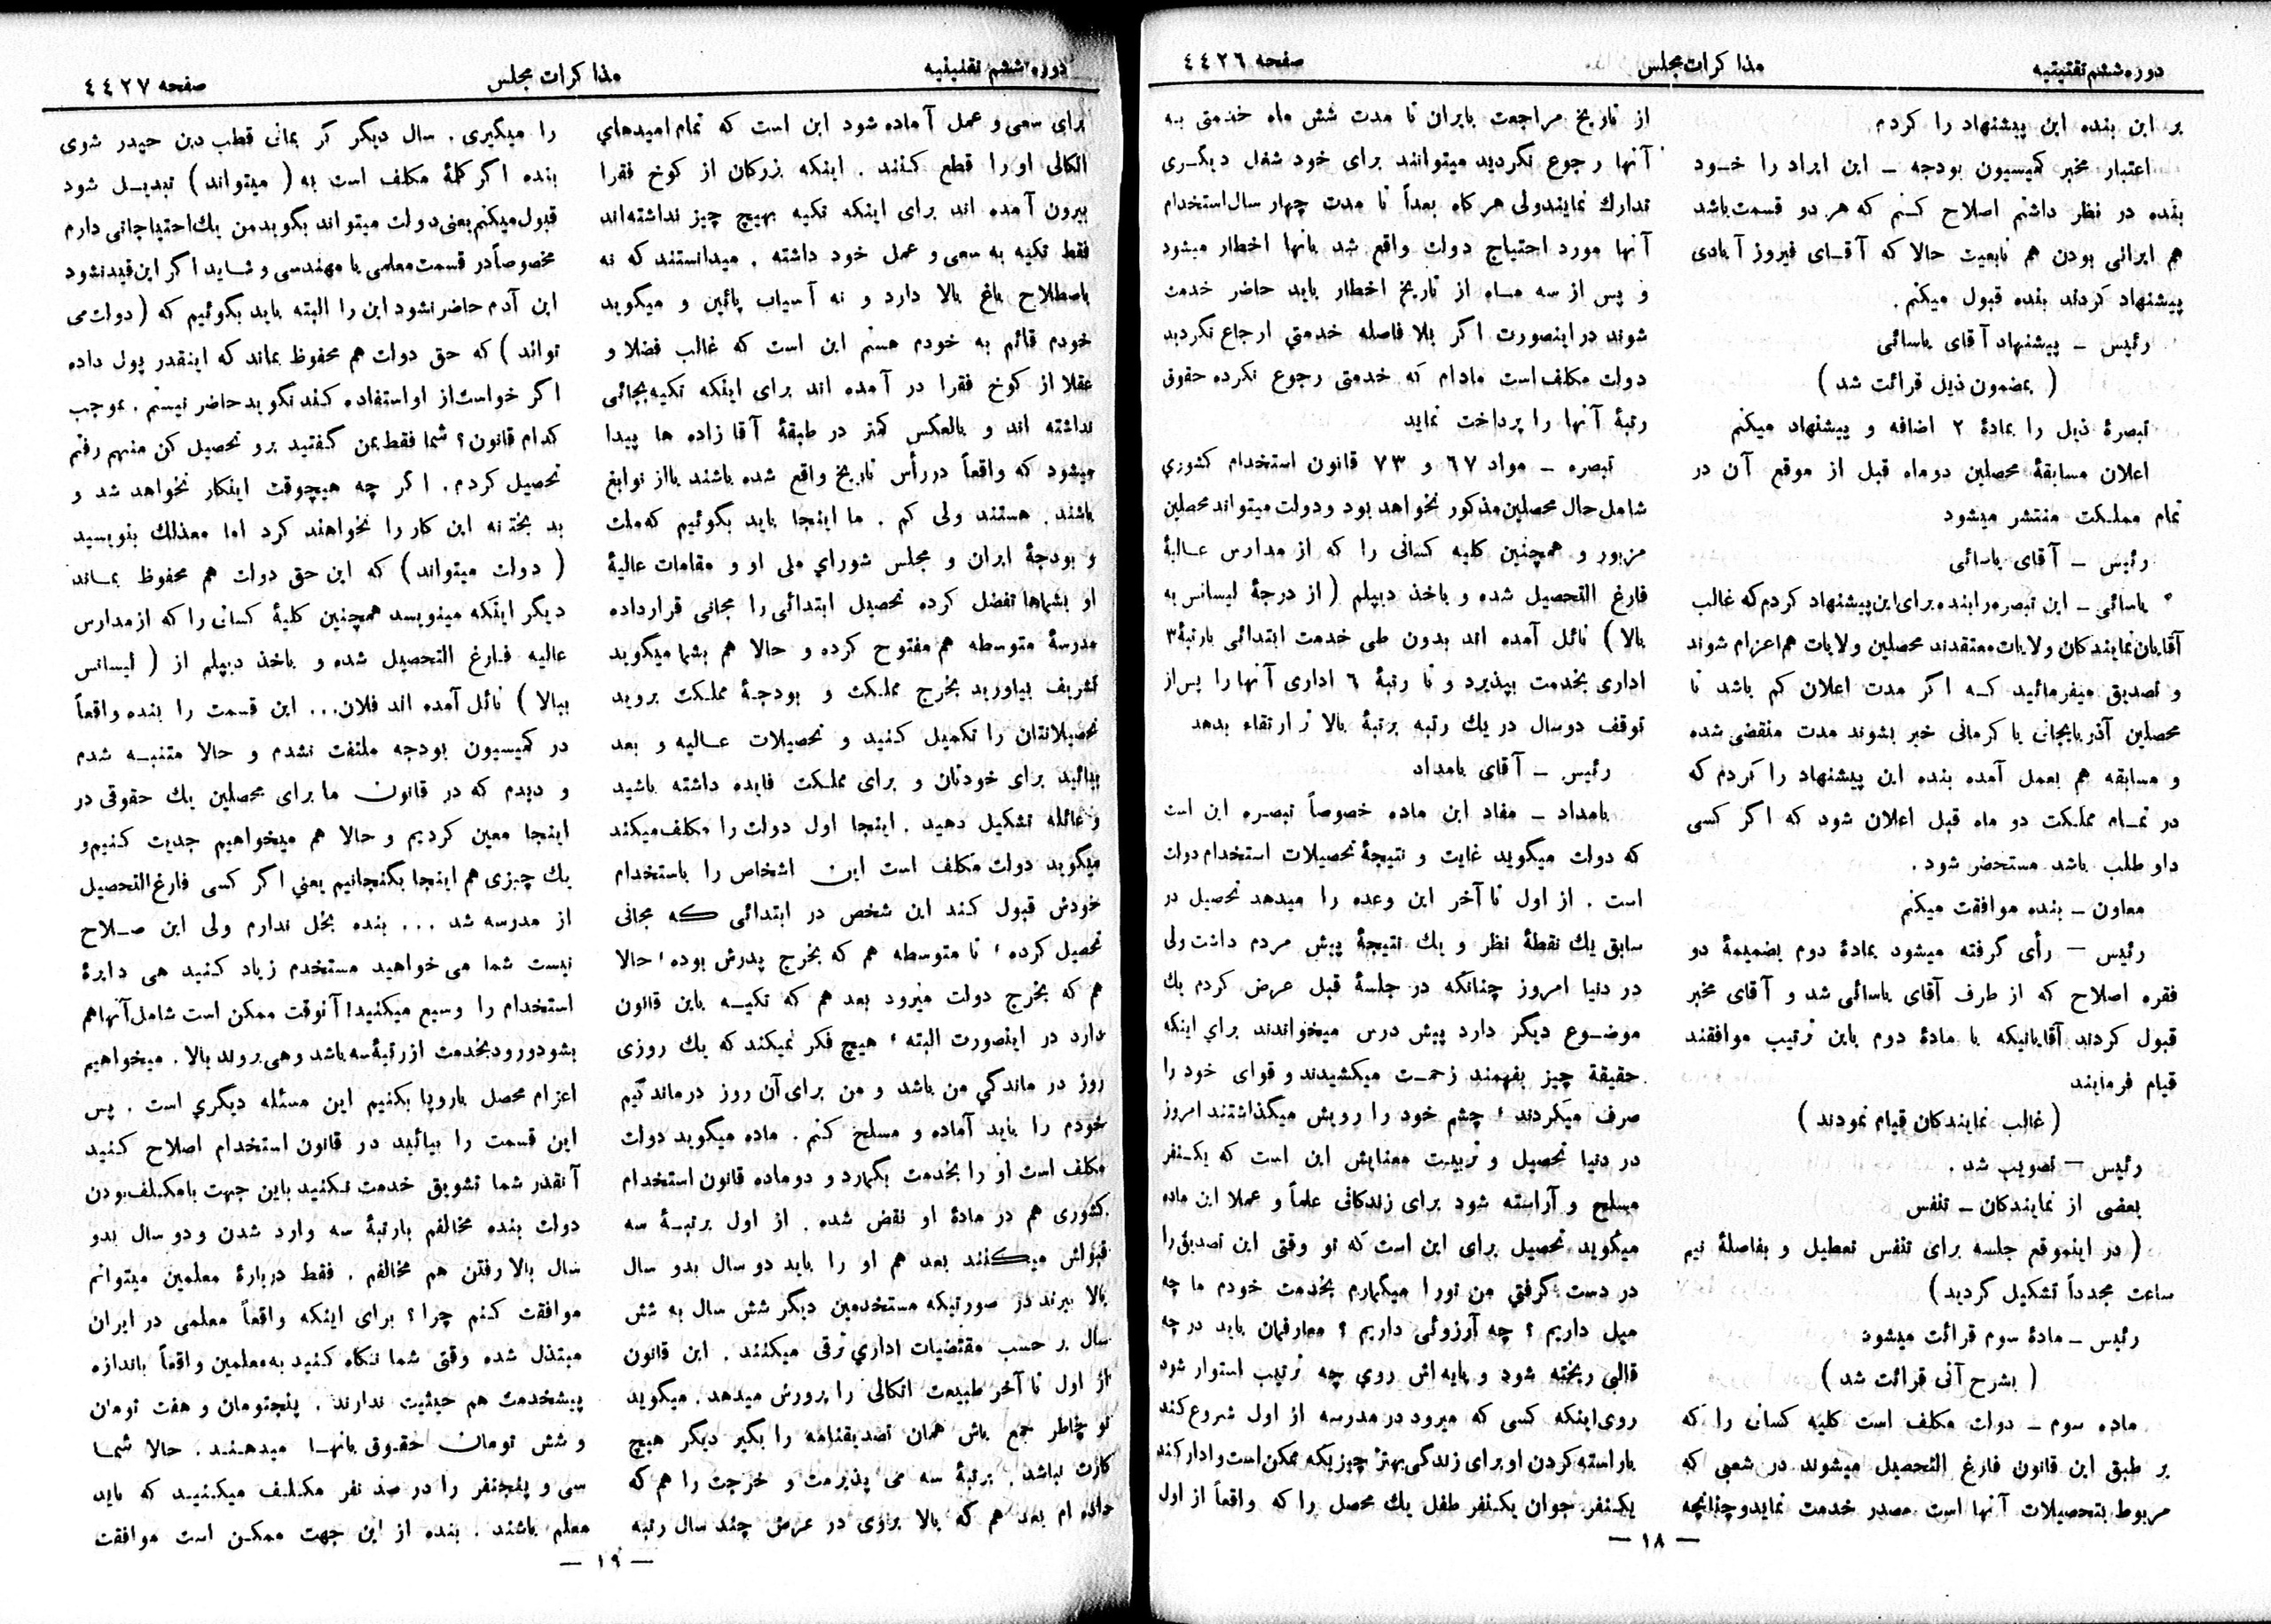 دوره ششم تقنینیه
مذاکرات مجلس
صفحه ٤٤٢٦
بر این بنده این پیشنهاد را کردم.
اعتبار مخبر کمیسیون بودجه ـ این ایراد را خود
بنده در نظر داشتم اصلاح کنم که هر دو قسمت باشد
هم ایرانی بودن هم تابعیت حالا که آقای فیروز آبادی
پیشنهاد کردند بنده قبول میکنم.
رئیس ـ پیشنهاد آقای یاسائی
( بمضمون ذیل قرائت شد )
تبصرهٔ ذیل را بمادهٔ ۲ اضافه و پیشنهاد میکنم
اعلان مسابقهٔ محصلین دو ماه قبل از موقع آن در
تمام مملکت منتشر میشود
رئیس ـ آقای یاسائی
یاسائی ـ این تبصره را بنده برای این پیشنهاد کردم که غالب
آقایان نمایندگان ولایات معتقدند محصلین ولایات هم اعزام شوند
و تصدیق میفرمائید که اگر مدت اعلان کم باشد تا
محصلین آذربایجانی یا کرمانی خبر بشوند مدت منقضی شده
و مسابقه هم بعمل آمده بنده این پیشنهاد را کردم که
در تمام مملکت دو ماه قبل اعلان شود که اگر کسی
داو طلب باشد مستحضر شود.
معاون ـ بنده موافقت میکنم
رئیس ـ رأی گرفته میشود بمادهٔ دوم بضمیمهٔ دو
فقره اصلاح که از طرف آقای یاسائی شد و آقای مخبر
قبول کردند آقایانیکه با مادهٔ دوم باین ترتیب موافقند
قیام فرمایند
( غالب نمایندگان قیام نمودند )
رئیس ـ تصویب شد.
بعضی از نمایندگان ـ تنفس
( در اینموقع جلسه برای تنفس تعطیل و بفاصلهٔ نیم
ساعت مجدداً تشکیل گردید )
رئیس ـ مادهٔ سوم قرائت میشود
( بشرح آتی قرائت شد )
ماده سوم ـ دولت مکلف است کلیه کسانی را که
بر طبق این قانون فارغ التحصیل میشوند در شعبی که
مربوط بتحصیلات آنها است مصدر خدمت نماید و چنانچه
از تاریخ مراجعت بایران تا مدت شش ماه خدمتی به
آنها رجوع نگردید میتوانند برای خود شغل دیگری
تدارک نمایند ولی هر گاه بعداً تا مدت چهار سال استخدام
آنها مورد احتیاج دولت واقع شد بآنها اخطار میشود
و پس از سه ماه از تاریخ اخطار باید حاضر خدمت
شوند در اینصورت اگر بلا فاصله خدمتی ارجاع نگردید
دولت مکلف است مادام که خدمتی رجوع نکرده حقوق
رتبهٔ آنها را پرداخت نماید
تبصره ـ مواد ٦٧ و ٧٣ قانون استخدام کشوری
شامل حال محصلین مذکور نخواهد بود و دولت میتواند محصلین
مزبور و همچنین کلیه کسانی را که از مدارس عالیهٔ
فارغ التحصیل شده و باخذ دیپلم ( از درجهٔ لیسانس به
بالا ) نائل آمده اند بدون طی خدمت ابتدائی با رتبهٔ ۳
اداری بخدمت بپذیرد و تا رتبهٔ ٦ اداری آنها را پس از
توقف دو سال در یك رتبه برتبهٔ بالا تر ارتقاء بدهد
رئیس ـ آقای بامداد
بامداد ـ مفاد این ماده خصوصاً تبصره این است
که دولت میگوید غایت و نتیجهٔ تحصیلات استخدام دولت
است. از اول تا آخر این وعده را میدهد تحصیل در
سابق یك نقطهٔ نظر و یك نتیجهٔ پیش مردم داشت ولی
در دنیا امروز چنانکه در جلسهٔ قبل عرض کردم یك
موضوع دیگر دارد پیش درس میخواندند برای اینکه
حقیقة چیز بفهمند زحمت میکشیدند و قوای خود را
صرف میکردند، چشم خود را رویش میگذاشتند امروز
در دنیا تحصیل و تربیت معنایش این است که یکنفر
مسلح و آراسته شود برای زندگانی علماً و عملا این ماده
میگوید تحصیل برای این است که تو وقتی این تصدیق را
در دست گرفتی من تورا میگمارم بخدمت خودم ما چه
میل داریم؟ چه آرزوئی داریم؟ معارفمان باید در چه
قالبی ریخته شود و پایه اش روي چه ترتیب استوار شود
روی اینکه کسی که میرود در مدرسه از اول شروع کند
باراسته کردن او برای زندگی بهتر چیزیکه ممکن است وادار کند
یکنفر جوان یکنفر طفل یك محصل را که واقعاً از اول
ـ ١٨ ـ
دوره ششم تقنینیه
مذاکرات مجلس
صفحه ٤٤٢٧
برای سعی و عمل آماده شود این است که تمام امیدهاي
اتکالی او را قطع کنند. اینکه بزرگان از کوخ فقرا
بیرون آمده اند برای اینکه تکیه بهیچ چیز نداشته اند
فقط تکیه به سعی و عمل خود داشته. میدانستند که نه
باصطلاح باغ بالا دارد و نه آسیاب پائین و میگوید
خودم قائم به خودم هستم این است که غالب فضلا و
عقلا از کوخ فقرا در آمده اند برای اینکه تکیه بجائی
نداشته اند و بالعکس کمتر در طبقهٔ آقا زاده ها پیدا
میشود که واقعاً در رأس تاریخ واقع شده باشند یا از نوابغ
باشند. هستند ولی کم. ما اینجا باید بگوئیم که ملت
و بودجهٔ ایران و مجلس شورای ملی او و مقامات عالیهٔ
او بشماها تفضل کرده تحصیل ابتدائی را مجانی قرار داده
مدرسهٔ متوسطه هم مفتوح کرده و حالا هم بشما میگوید
تشریف بیاورید بخرج مملکت و بودجهٔ مملکت بروید
تحصیلاتتان را تکمیل کنید و تحصیلات عالیه و بعد
بیائید برای خودتان و برای مملکت فایده داشته باشید
و عائله تشکیل دهید. اینجا اول دولت را مکلف میکند
میگوید دولت مکلف است این اشخاص را باستخدام
خودش قبول کند این شخص در ابتدائی که مجانی
تحصیل کرده، تا متوسطه هم که بخرج پدرش بوده، حالا
هم که بخرج دولت میرود بعد هم که تکیه باین قانون
دارد در اینصورت البته، هیچ فکر نمیکند که یك روزی
روز در ماندگي من باشد و من برای آن روز درماندگیم
خودم را باید آماده و مسلح کنم. ماده میگوید دولت
مکلف است او را بخدمت بگمارد و دو ماده قانون استخدام
کشوری هم در مادهٔ او نقض شده. از اول برتبهٔ سه
قبولش میکنند بعد هم او را باید دو سال بدو سال
بالا ببرند در صورتیکه مستخدمین دیگر شش سال به شش
سال بر حسب مقتضیات اداري ترقی میکنند. این قانون
از اول تا آخر طبیعت اتکالی را پرورش میدهد. میگوید
تو خاطر جمع باش همان تصدیقنامه را بگیر دیگر هیچ
کارت نباشد. برتبهٔ سه می پذیرمت و خرجت را هم که
داده ام بعد هم که بالا بروی در عرض چند سال رتبه
را میگیری. سال دیگر گر بمانی قطب دین حیدر شوی
بنده اگر کلمهٔ مکلف است به ( میتواند ) تبدیل شود
قبول میکنم یعنی دولت میتواند بگوید من یك احتیاجاتی دارم
مخصوصاً در قسمت معلمی یا مهندسی و شاید اگر این قید نشود
این آدم حاضر نشود این را البته باید بگوئیم که ( دولت می
تواند ) که حق دولت هم محفوظ بماند که اینقدر پول داده
اگر خواست از او استفاده کند نگوید حاضر نیستم. بموجب
کدام قانون؟ شما فقط بمن گفتید برو تحصیل کن منهم رفتم
تحصیل کردم. اگر چه هیچوقت اینکار نخواهد شد و
بد بختانه این کار را نخواهند کرد اما معذلك بنویسید
( دولت میتواند ) که این حق دولت هم محفوظ بماند
دیگر اینکه مینویسد همچنین کلیهٔ کسانی را که از مدارس
عالیه فارغ التحصیل شده و باخذ دیپلم از ( لیسانس
ببالا ) نائل آمده اند فلان... این قسمت را بنده واقعاً
در کمیسیون بودجه ملتفت نشدم و حالا متنبه شدم
و دیدم که در قانون ما برای محصلین یك حقوقی در
اینجا معین کردیم و حالا هم میخواهیم جدیت کنیم و
یك چیزی هم اینجا بگنجانیم یعني اگر کسی فارغ التحصیل
از مدرسه شد ... بنده بخل ندارم ولی این صلاح
نیست شما می خواهید مستخدم زیاد کنید هی دایرهٔ
استخدام را وسیع میکنید! آنوقت ممکن است شامل آنها هم
بشود ورود بخدمت از رتبهٔ سه باشد وهی بروند بالا. میخواهیم
اعزام محصل باروپا بکنیم این مسئله دیگري است. پس
این قسمت را بیائید در قانون استخدام اصلاح کنید
آنقدر شما تشویق خدمت نکنید باین جهت با مکلف بودن
دولت بنده مخالفم با رتبهٔ سه وارد شدن و دو سال بدو
سال بالا رفتن هم مخالفم. فقط در بارهٔ معلمین میتوانم
موافقت کنم چرا؟ برای اینکه واقعاً معلمی در ایران
مبتذل شده وقتی شما نگاه کنید به معلمین واقعاً باندازه
پیشخدمت هم حیثیت ندارند. پنجتومان و هفت تومان
و شش تومان حقوق بآنها میدهند. حالا شما
سی و پنجنفر را در صد نفر مکلف میکنید که باید
معلم باشند. بنده از این جهت ممکن است موافقت
ـ ١٩ ـ